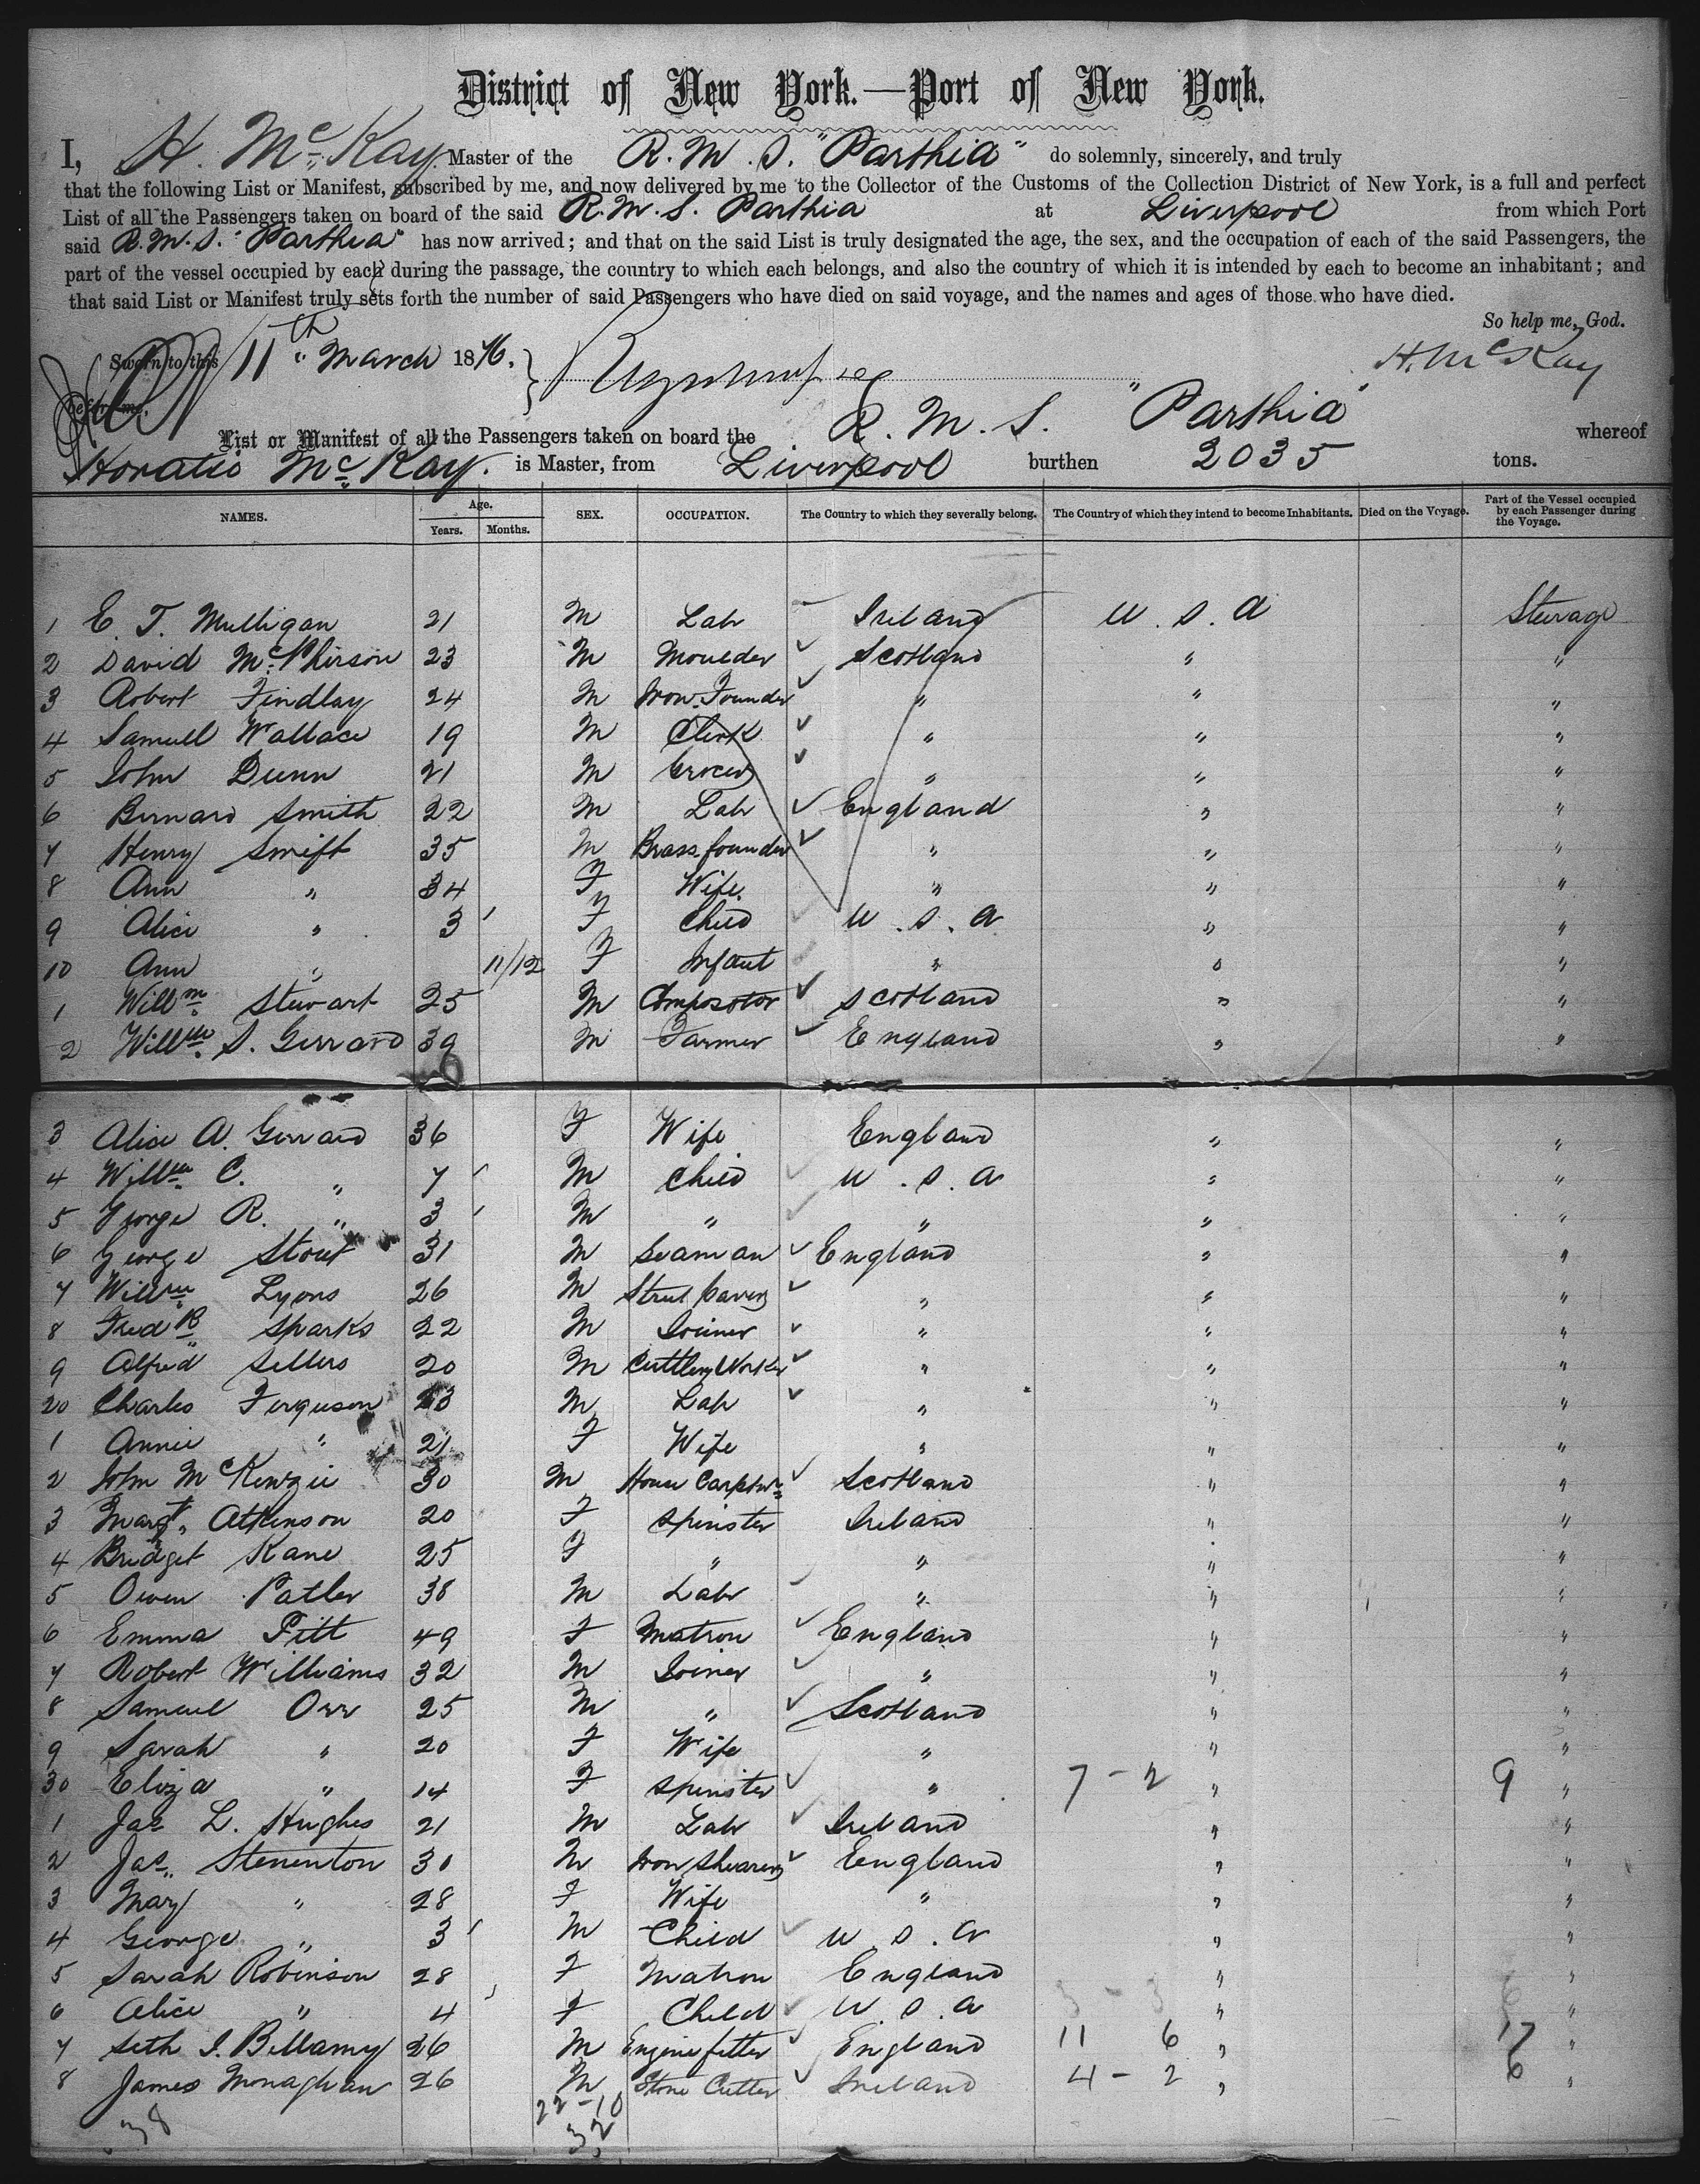 District of New York.—Port of New York.
I, H. McKay. Master of the R.M.S. "Parthia" do solemnly, sincerely, and truly
that the following List or Manifest, subscribed by me, and now delivered by me to the Collector of the Customs of the Collection District of New York, is a full and perfect
List of all the Passengers taken on board of the said R.M.S. Parthia at Liverpool from which Port
said R.M.S. "Parthia" has now arrived; and that on the said List is truly designated the age, the sex, and the occupation of each of the said Passengers, the
part of the vessel occupied by each during the passage, the country to which each belongs, and also the country of which it is intended by each to become an inhabitant; and
that said List or Manifest truly sets forth the number of said Passengers who have died on said voyage, and the names and ages of those who have died.
So help me, God.
Sworn to this 11th March 1876. H. McKay
before me.
List or Manifest of all the Passengers taken on board the R.M.S. "Parthia" whereof
Horatio McKay. is Master, from Liverpool burthen 2035 tons.
NAMES. Age. Years. Months. SEX. OCCUPATION. The Country to which they severally belong. The Country of which they intend to become Inhabitants. Died on the Voyage. Part of the Vessel occupied by each Passenger during the Voyage.
1 E. T. Mulligan 21 M Labr Ireland U.S.A Steerage
2 David McPhirson 23 M Moulder Scotland " "
3 Robert Findlay 24 M Iron Founder " " "
4 Samuell Wallace 19 M Clerk " " "
5 John Dunn 21 M Grocer " " "
6 Bernard Smith 22 M Labr England " "
7 Henry Swift 35 M Brass founder " " "
8 Ann " 34 F Wife " " "
9 Alice " 3 F Child U.S.A " "
10 Ann " 11/12 F Infant " " "
1 Willm Stewart 25 M Compositor Scotland " "
2 Willm S. Gerrard 39 M Farmer England " "
3 Alice A. Gerrard 36 F Wife England " "
4 Willm C. " 7 M Child U.S.A " "
5 George R. " 3 M " " " "
6 George Stout 31 M Seaman England " "
7 Willm Lyons 26 M Street Paver " " "
8 Fredk Sparks 22 M Joiner " " "
9 Alfred Sellers 20 M Cuttlery Worker " " "
20 Charles Ferguson 23 M Labr " " "
1 Annie " 21 F Wife " " "
2 John McKenzie 30 M House Carpentr Scotland " "
3 Margt. Atkinson 20 F Spinster Ireland " "
4 Bridget Kane 25 F " " " "
5 Owen Patler 38 M Labr " " "
6 Emma Pitt 49 F Matron England " "
7 Robert Williams 32 M Joiner " " "
8 Samuel Orr 25 M " Scotland " "
9 Sarah " 20 F Wife " " "
30 Eliza " 14 F Spinster " 7-2 " 9 "
1 Jas L. Hughes 21 M Labr Ireland " "
2 Jas. Stenenton 30 M Iron Shearer England " "
3 Mary " 28 F Wife " " "
4 George " 3 M Child U.S.A " "
5 Sarah Robinson 28 F Matron England " "
6 Alice " 4 F Child U.S.A 3-3 " 6 "
7 Seth I. Bellamy 26 M Engine fitter England 11 6 " 17 "
8 James Monaghan 26 M Stone Cutter Ireland 4-2 " 6 "
38 22-10
32